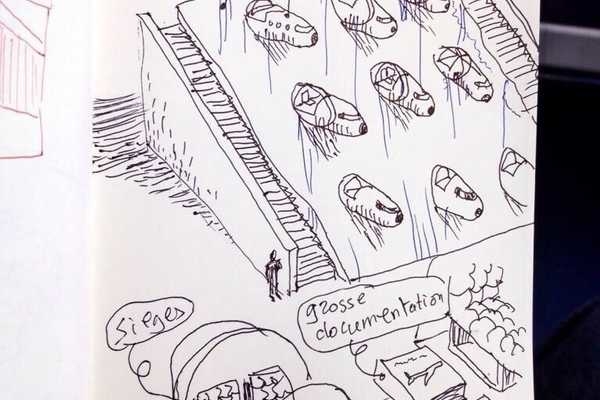 sieges
grosse
documentation